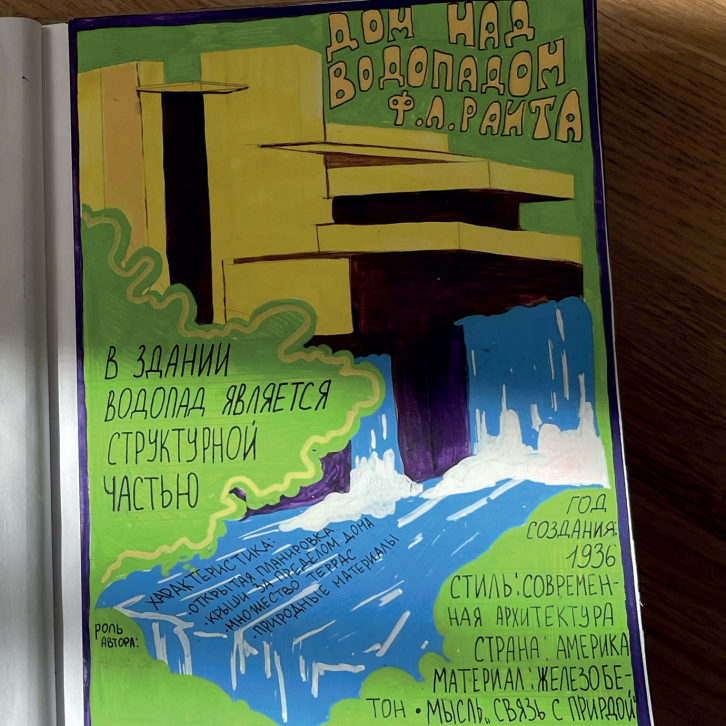 ДОМ НАД
ВОДОПАДОМ
Ф.Л.РАЙТА
В ЗДАНИИ
ВОДОПАД ЯВЛЯЕТСЯ
СТРУКТУРНОЙ
ЧАСТЬЮ
ХАРАКТЕРИСТИКА:
·ОТКРЫТАЯ ПЛАНИРОВКА
·КРЫШИ ЗА ПРЕДЕЛОМ ДОМА
·МНОЖЕСТВО ТЕРРАС
·ПРИРОДНЫЕ МАТЕРИАЛЫ
РОЛЬ
АВТОРА:
ГОД
СОЗДАНИЯ:
1936
СТИЛЬ:СОВРЕМЕН-
НАЯ АРХИТЕКТУРА
СТРАНА: АМЕРИКА
МАТЕРИАЛ:ЖЕЛЕЗОБЕ-
ТОН • МЫСЛЬ„СВЯЗЬ С ПРИРДОЙ"